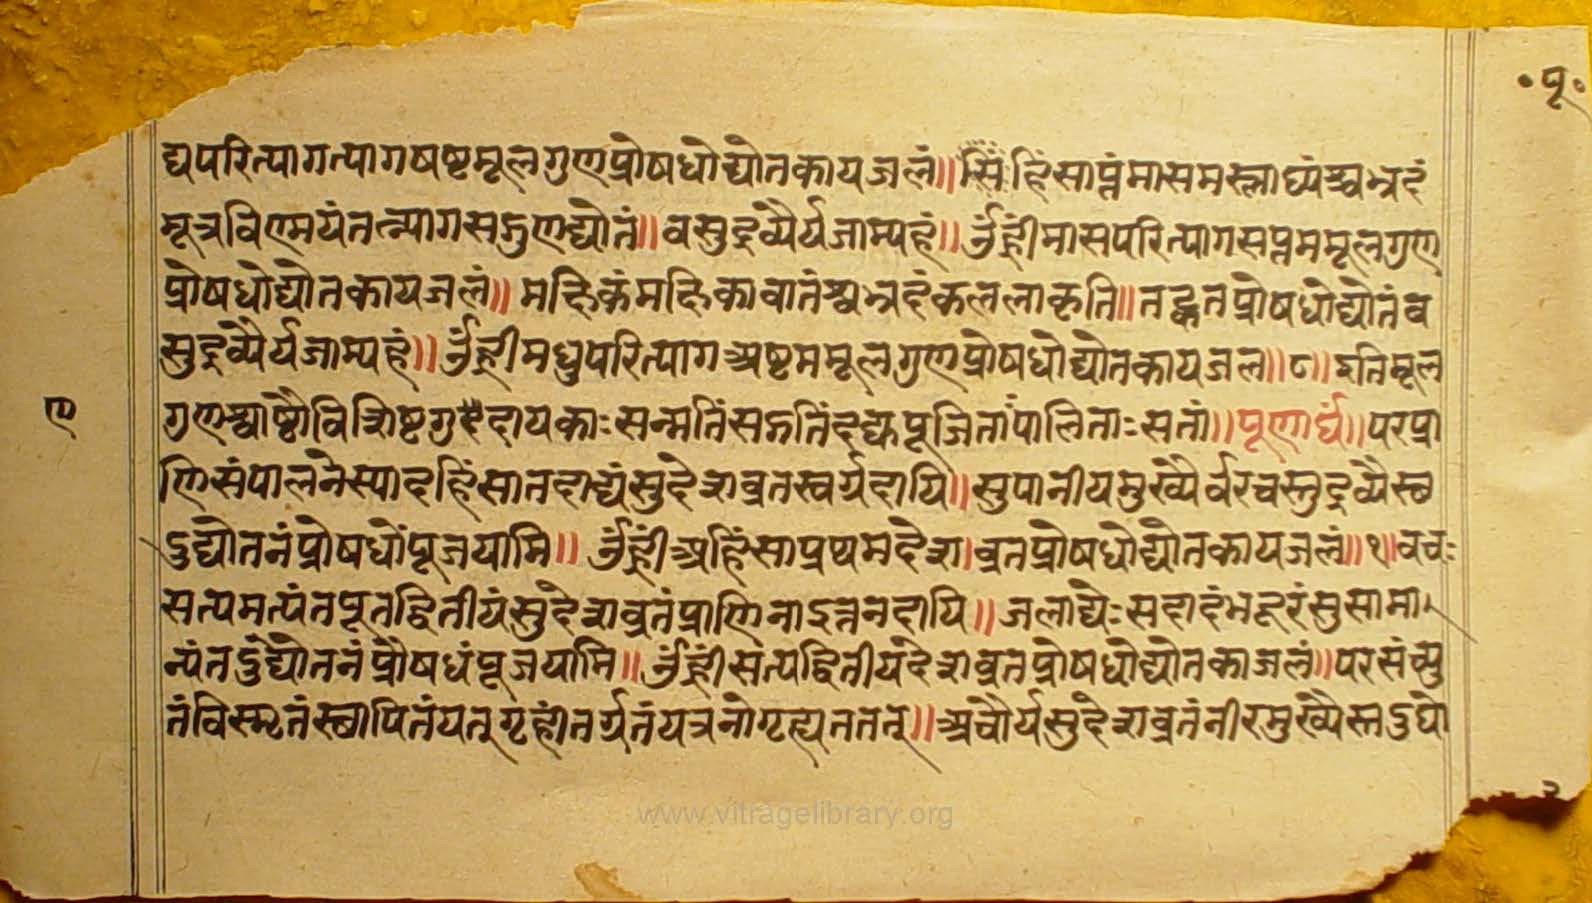 ॰पू॰
द्यपरित्यागत्यागषष्टमूलगुणप्रोषधोद्योतकायजलं॥ हिंसाप्तंमासमस्लाघ्यंश्वभ्रदं
मूत्रविण्मयंतत्त्यागसद्गुणद्योतं॥वसुद्रव्यैर्यजाम्यहं॥ॐह्रींमासपरित्यागसप्तममूलगुण
प्रोषधोद्योतकायजलं॥मक्षिकंमक्षिकावातंश्वभ्रदंकललाकृति॥तद्व्रतप्रोषधोद्योतंव
सुद्रव्यैर्यजाम्यहं॥ॐह्रीमधुपरित्यागअष्टममूलगुणप्रोषधोद्योतकायजल॥८॥इतिमूल
गुणाश्चाष्टौविशिष्ट दायकाः सन्मतिं पूजितांपालिताःसतां॥पूर्णार्घं॥परप्रा
णिसंपालनेस्यादहिंसातदाद्यंसुदेशव्रतस्वर्गदायि॥सुपानीयमुख्यैर्वरवस्तुद्रव्यैस्त
ऽद्योतनंप्रोषधोंपूजयामि॥ॐह्रींअहिंसाप्रथमदेशव्रतप्रोषधोद्योतकायजलं॥१॥वचः
सत्यमत्यंतपूतद्वितीयंसुदेशव्रतंप्राणिना दायि॥जलाद्यैः सुसामा
न्यंतऽद्योतनंप्रौषधंपूजयामि॥ॐह्रींसत्यद्वितीयदेशव्रतप्रोषधोद्योतकाजलं॥परसंच्यु
तंविस्मृतंस्थापितंयत् यत्रनोगृह्यततत्॥अचौर्यसुदेशव्रतंनीरमुख्यैस्तऽघो
९
२
www.vitragelibrary.org